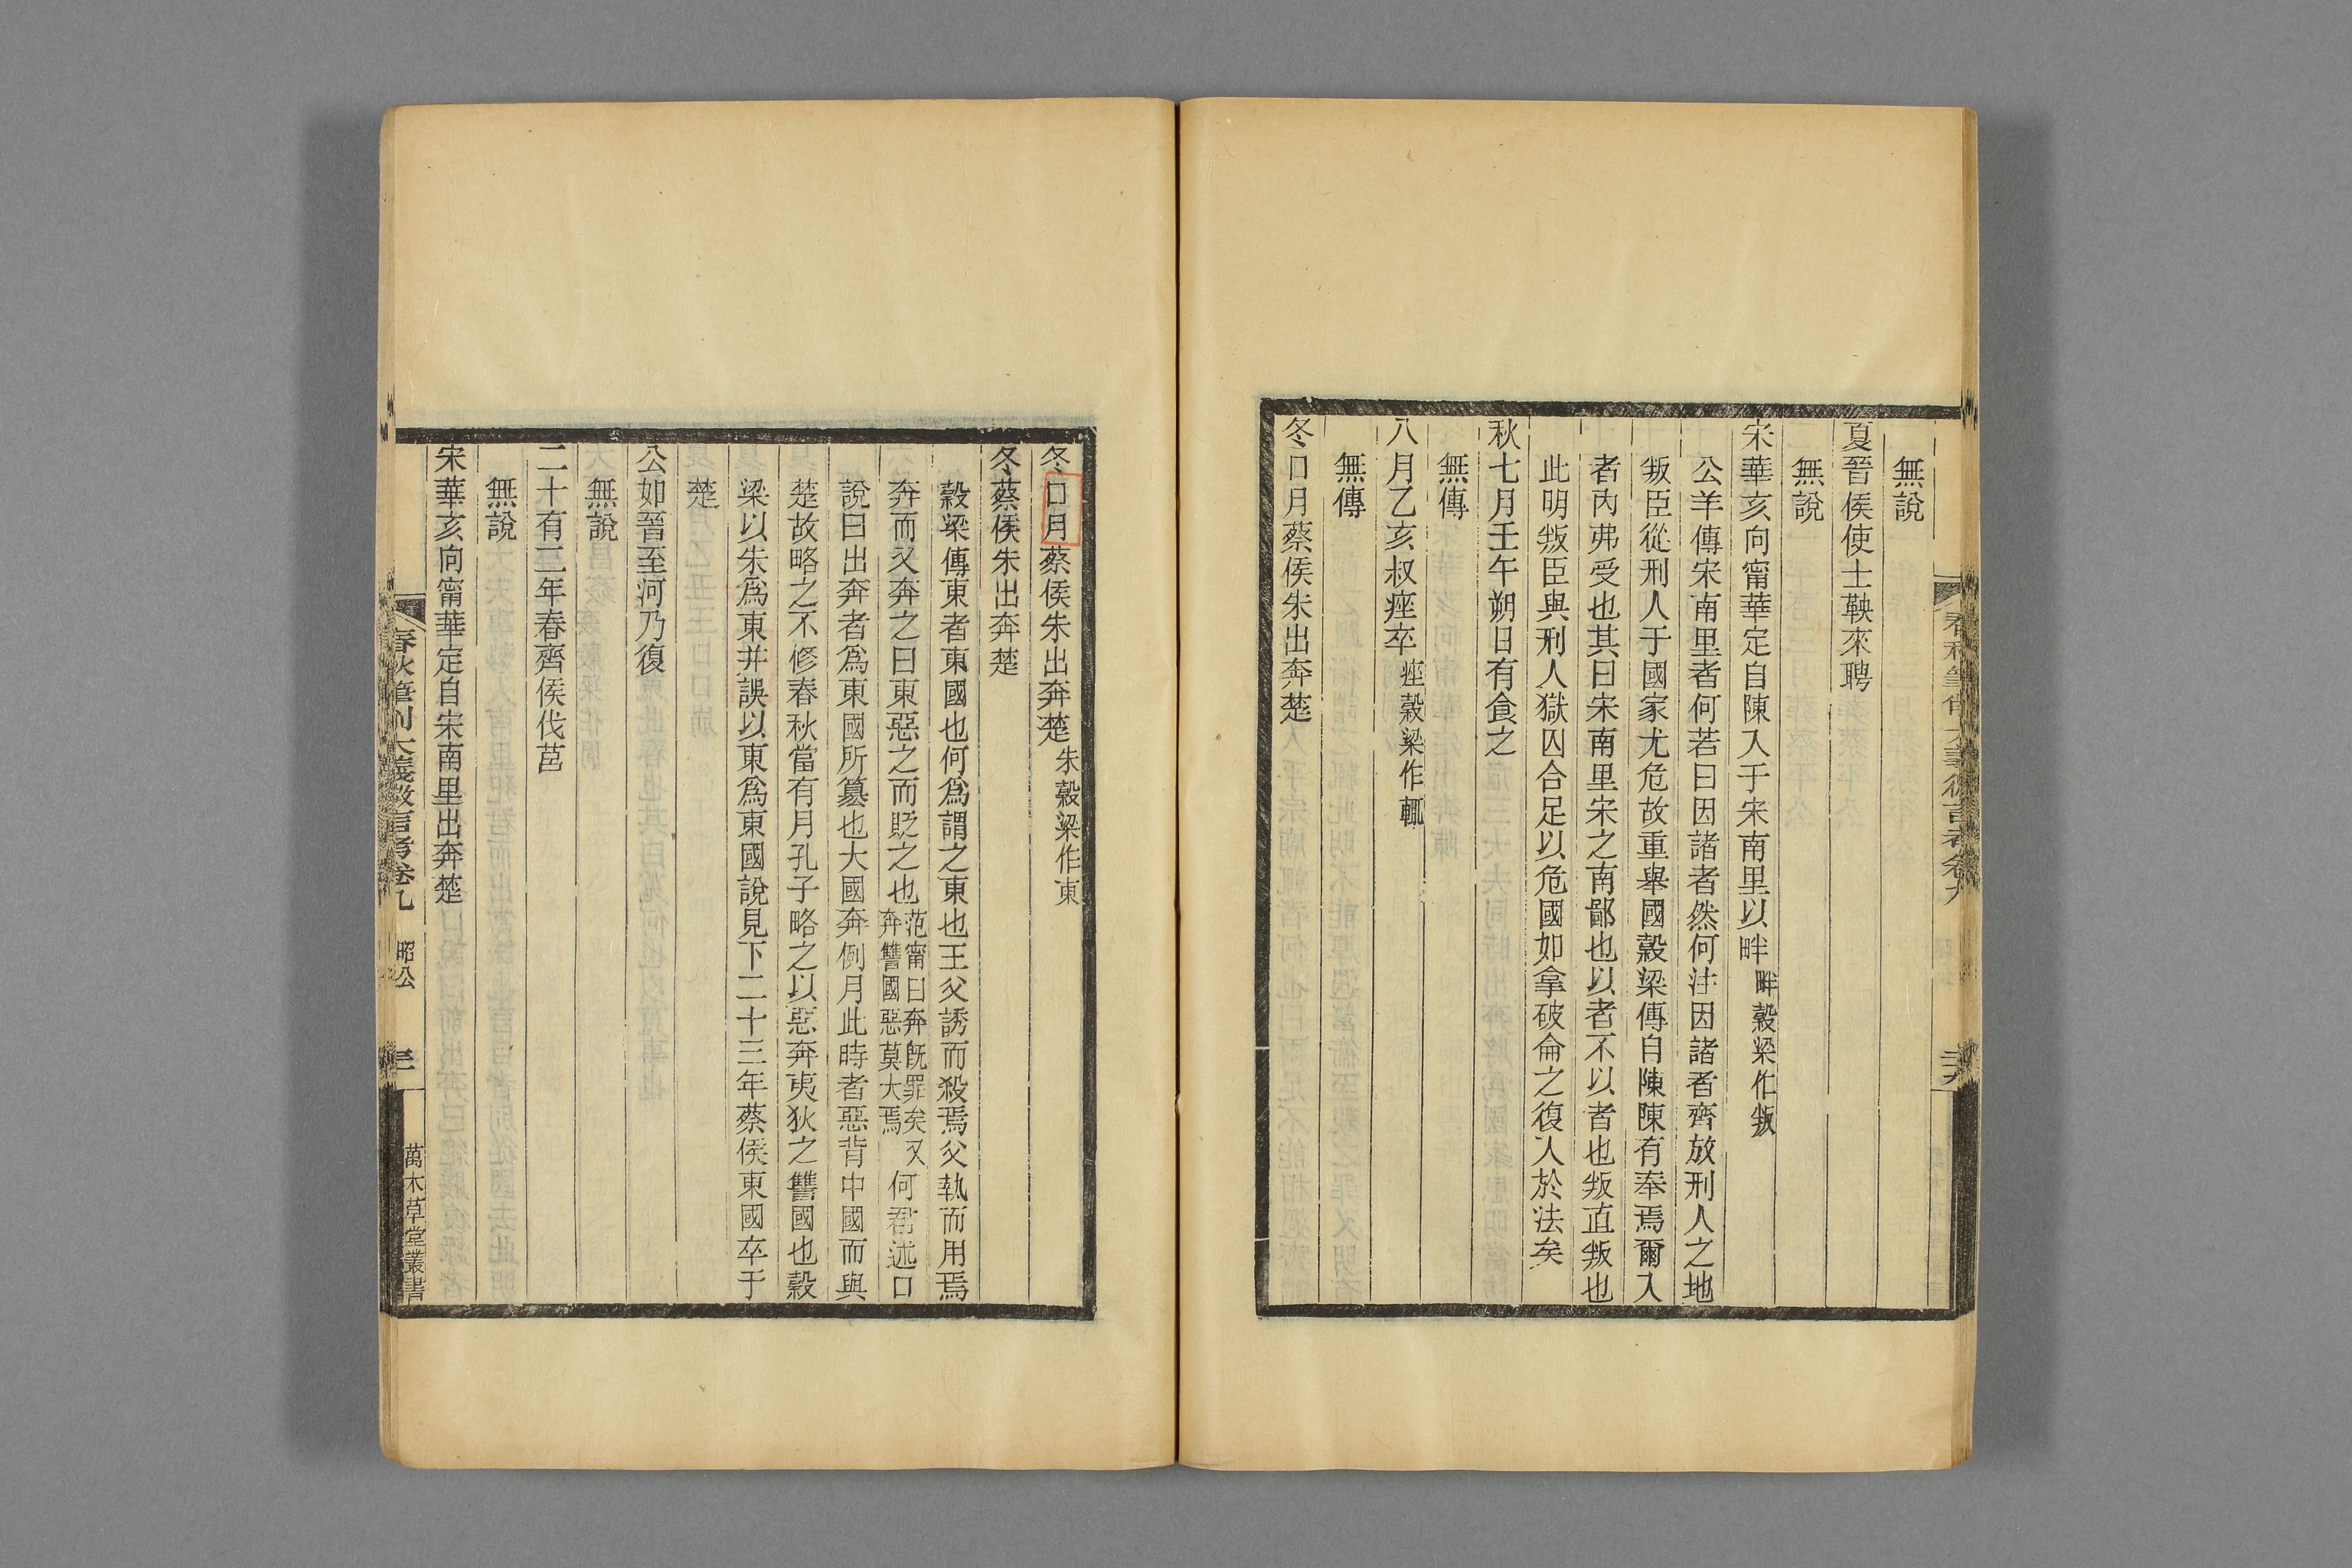 無說
夏晉侯使士鞅來聘
無說
宋華亥向甯華定自陳入于宋南里以畔畔穀梁作叛
公羊傳宋南里者何若曰因諸者然何注因諸者齊放刑人之地
叛臣從刑人于國家尤危故重舉國穀梁傳自陳陳有奉焉爾入
者內弗受也其曰宋南里宋之南鄙也以者不以者也叛直叛也
此明叛臣與刑人獄囚合足以危國如拿破侖之復入於法矣
秋七月壬午朔日有食之
無傳
八月乙亥叔痤卒痤穀梁作輒
無傳
冬口月蔡侯朱出奔楚
春秋筆削大義微言考卷九
冬口月蔡侯朱出奔楚朱穀梁作東
冬蔡侯朱出奔楚
穀梁傳東者東國也何為謂之東也王父誘而殺焉父執而用焉
奔而又奔之曰東惡之而貶之也范甯曰奔既罪矣又奔讐國惡莫大焉何君述口
說曰出奔者為東國所簒也大國奔例月此時者惡背中國而與
楚故略之不修春秋當有月孔子略之以惡奔夷狄之讐國也穀
梁以朱為東并誤以東為東國說見下二十三年蔡侯東國卒于
楚
公如晉至河乃復
無說
二十有二年春齊侯伐莒
無說
宋華亥向甯華定自宋南里出奔楚
春秋筆削大義微言考卷九 昭公 萬木草堂叢書